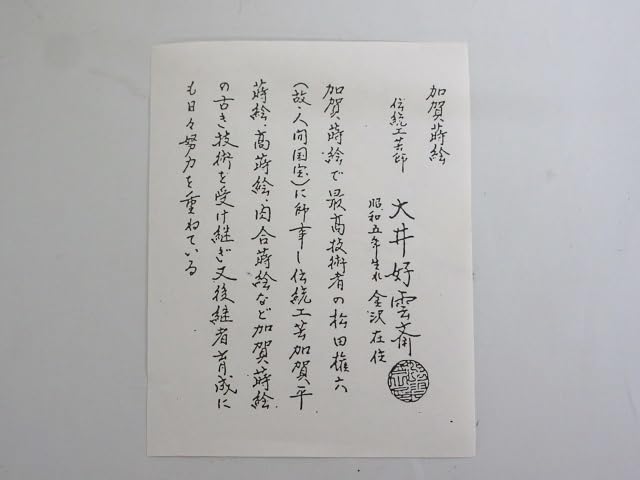 加賀蒔絵
伝統工芸師 大井好雲斎
昭和五年生れ 金沢在住
加賀蒔絵で最高技術者の松田権六
（故・人間国宝）に師事し伝統工芸加賀平
蒔絵・高蒔絵・肉合蒔絵など加賀蒔絵
の古き技術を受け継ぎ又後継者育成に
も日々努力を重ねている